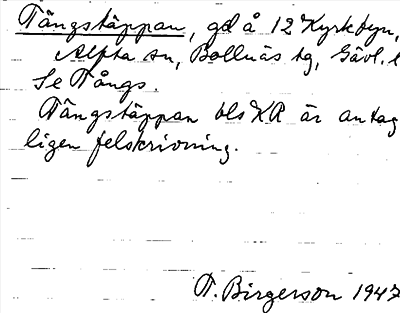 Tängstäppan, gd å 12 Kyrkbyn,
Alfta sn, Bollnäs tg, Gävl. l
Se Tångs.
Tängstäppan bls KR är antag
ligen felskrivning.
T. Birgerson 1947